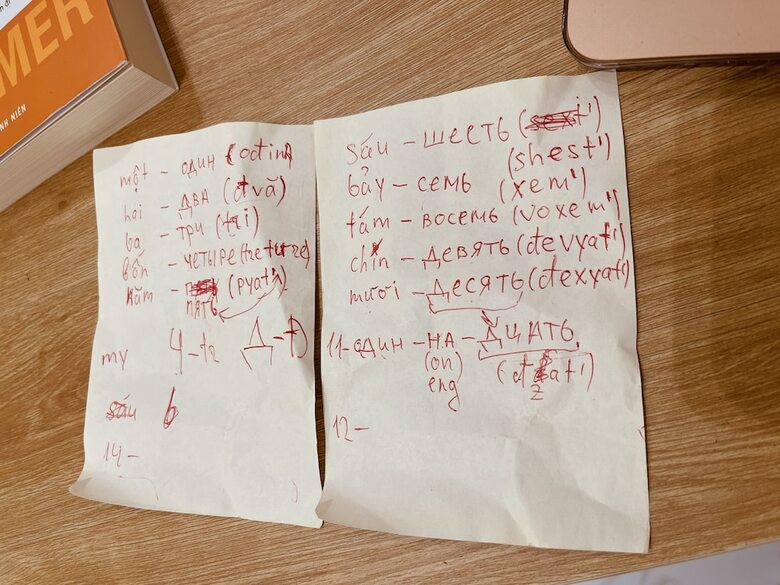 MER
NH NIÊN
một - один (odin)
hai - ДВА (đvă)
ba - ТРИ (tri)
bốn - ЧЕТЫРЕ
năm - (pyat')
ПЯТЬ
my Ч - tz Д - Đ
sáu 6
14 -
sáu - ШЕСТЬ
(shest')
bảy - СЕМЬ (xem')
tám - ВОСЕМЬ (voxem')
chín - ДЕВЯТЬ (đevyat')
mười - ДЕСЯТЬ (đexyat')
11 - один - НА - ДЦАТЬ
(on)
eng
z
12 -